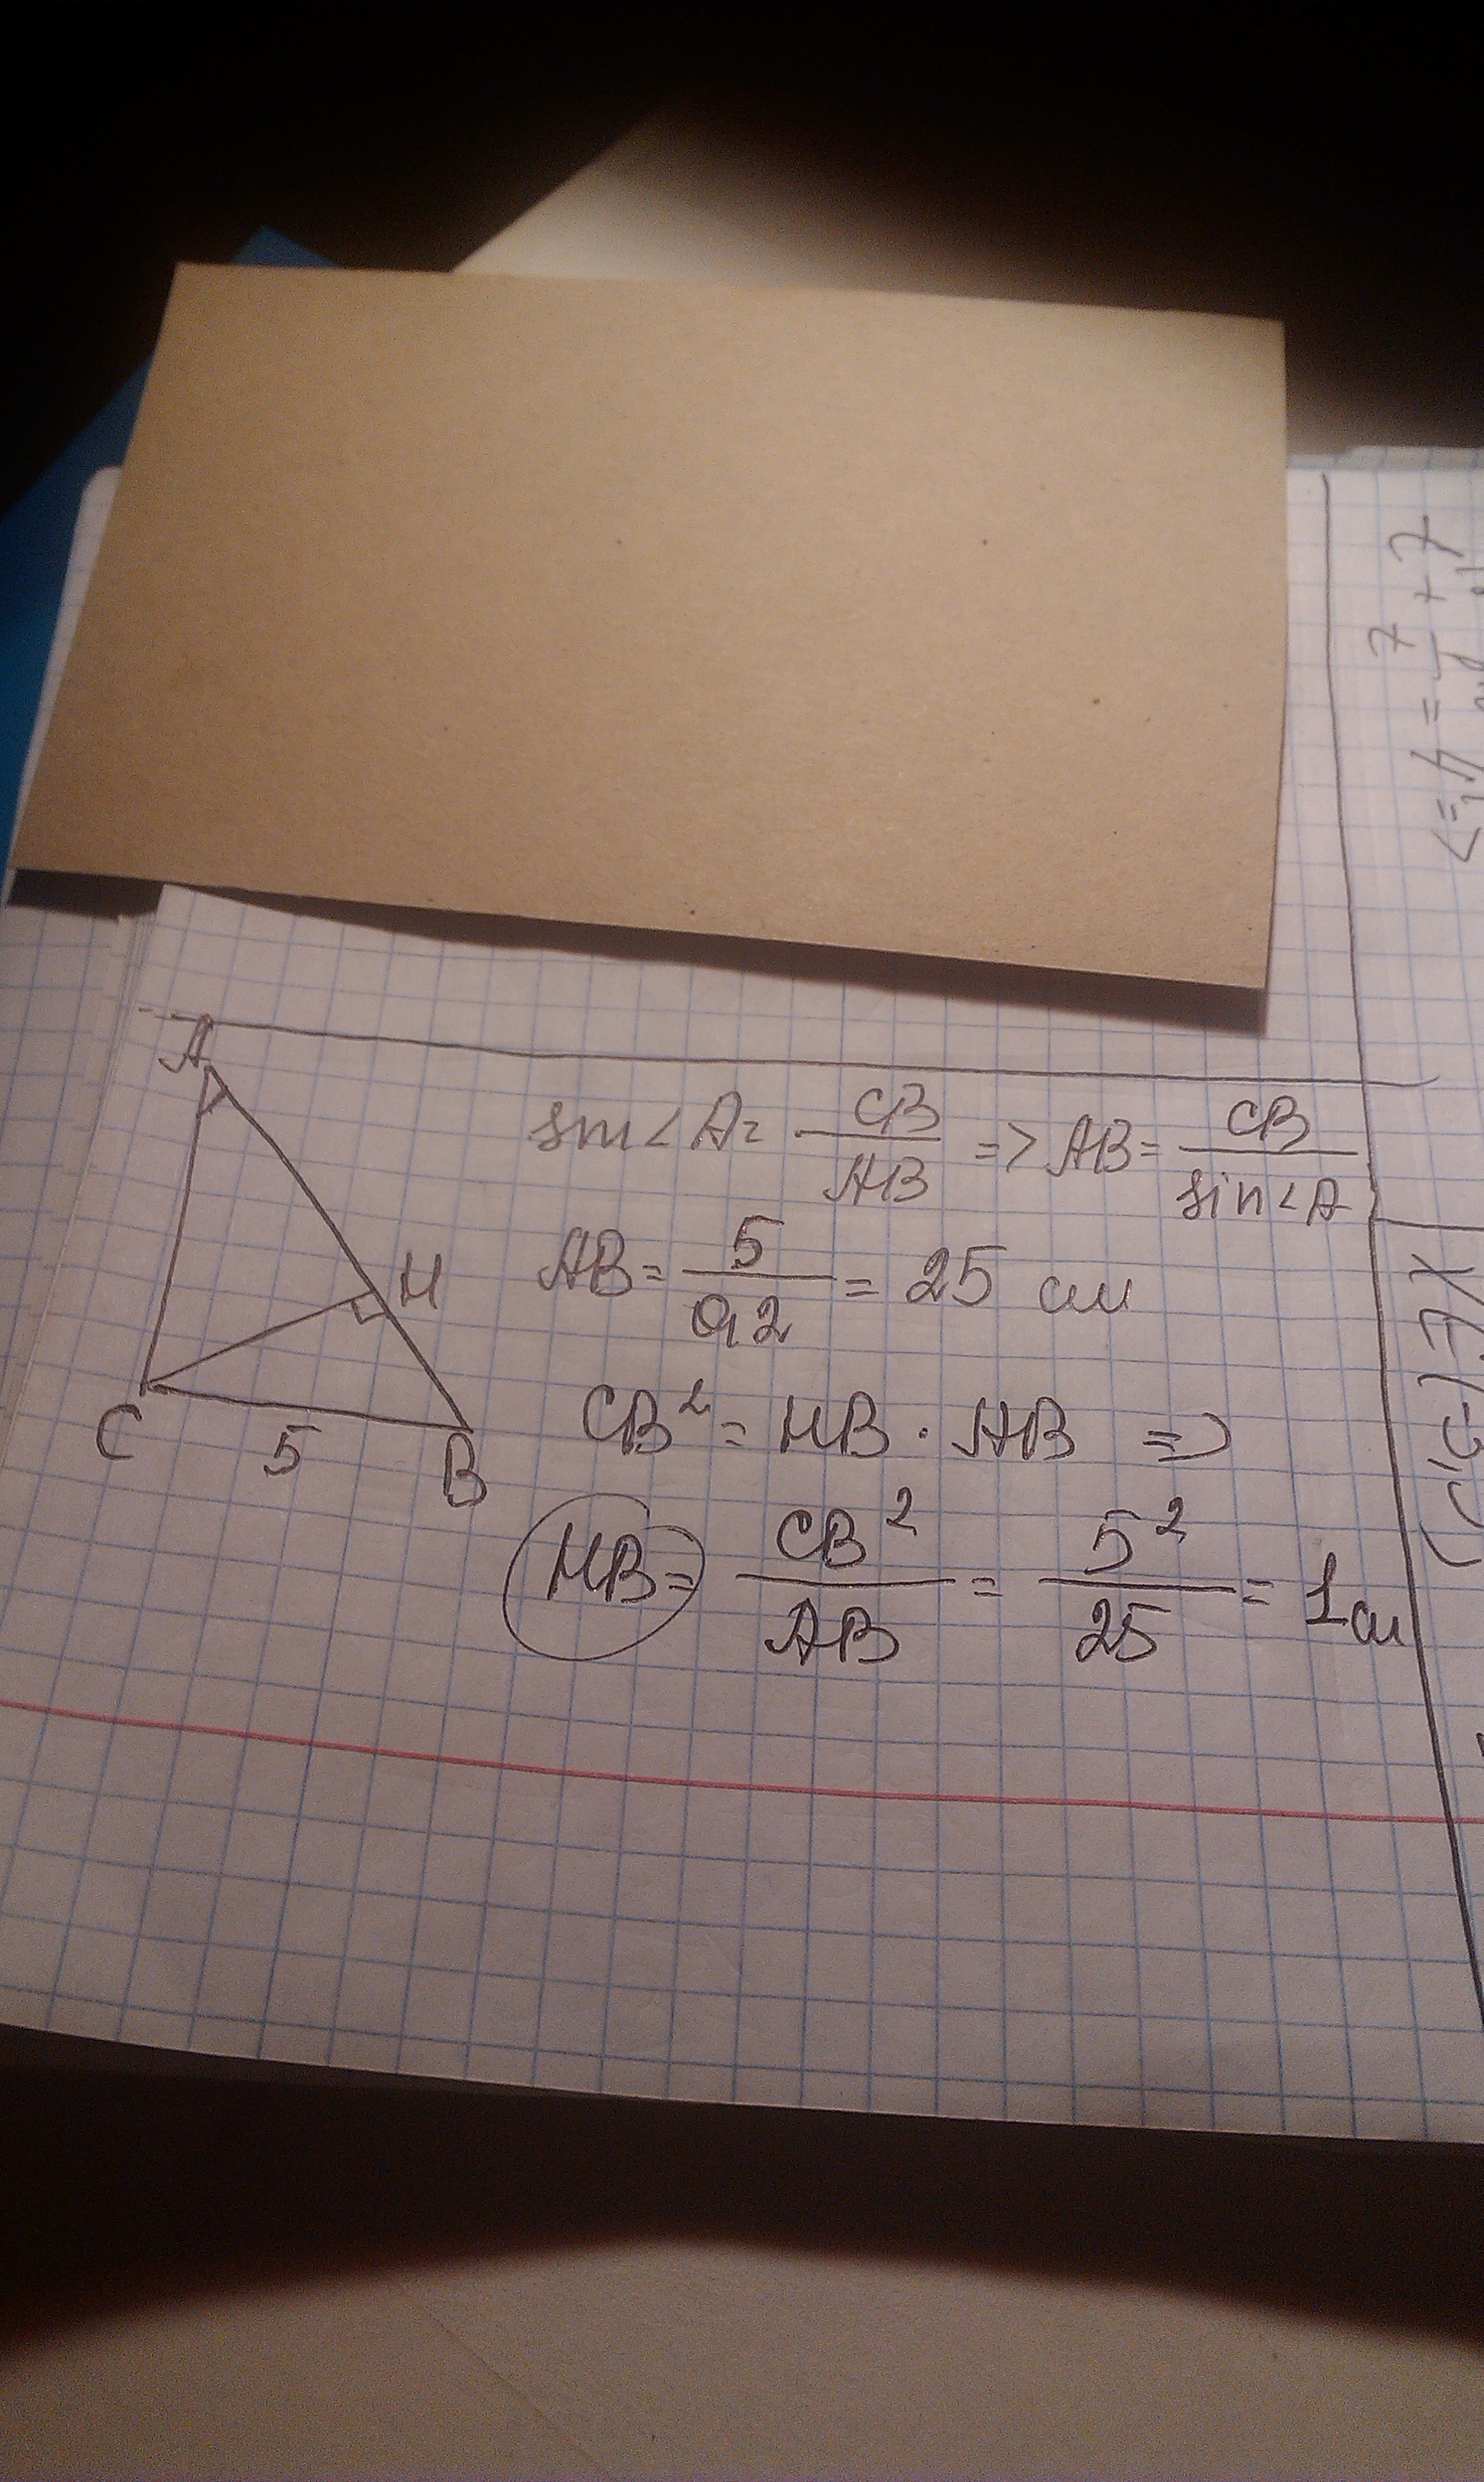 A
H
C
5
B
sin∠A = CB/AB => AB = CB/sin∠A
AB = 5/0,2 = 25 см
CB² = HB · AB =>
HB = CB²/AB = 5²/25 = 1 см